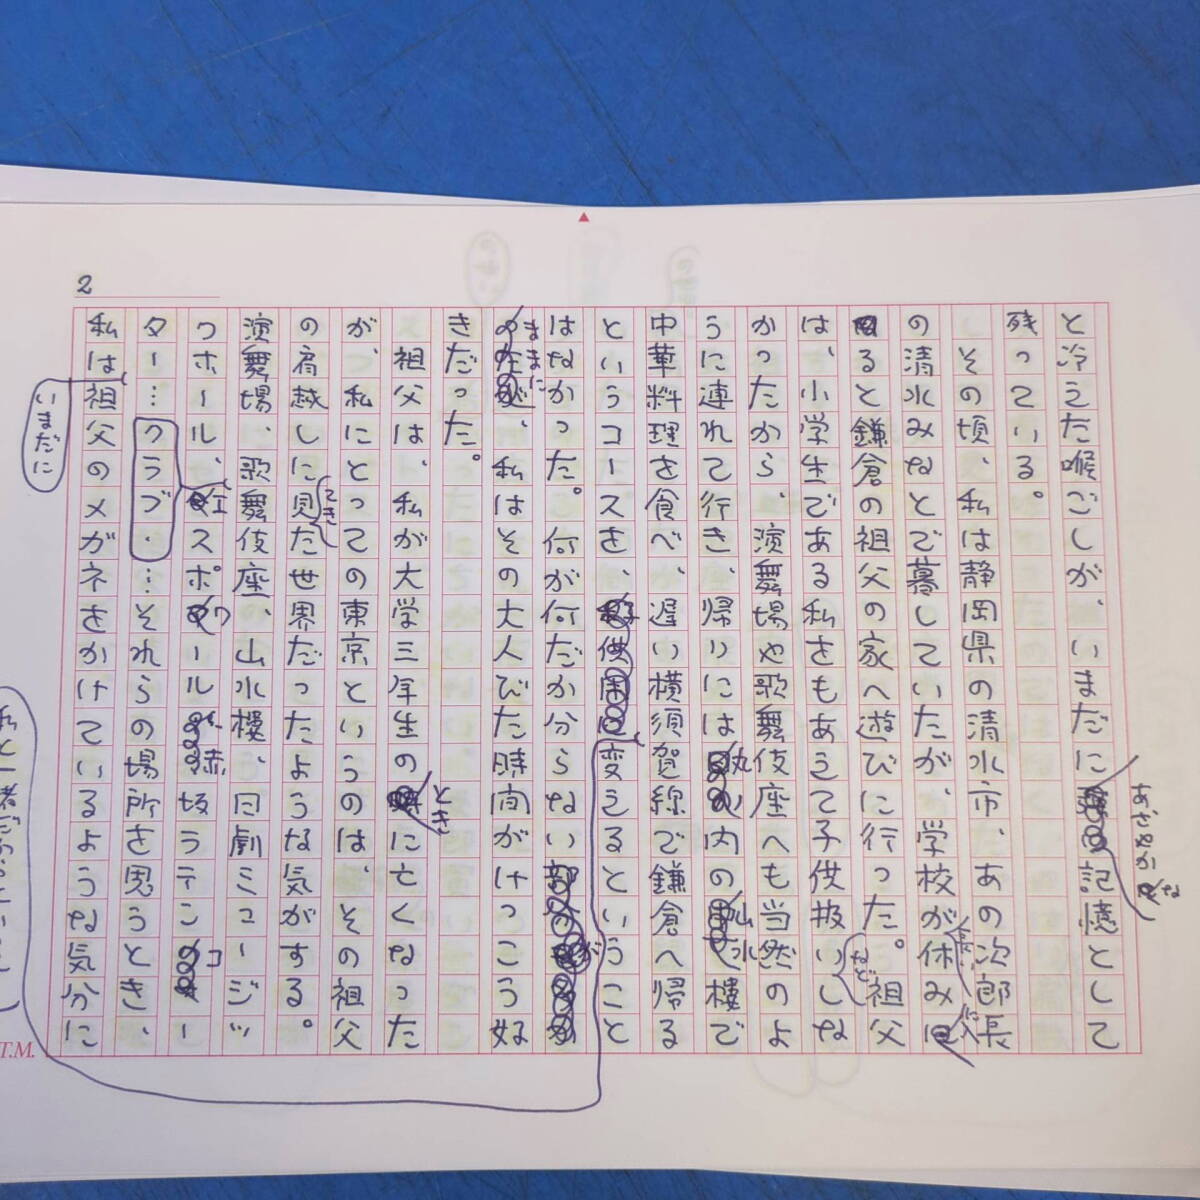 2
と冷えた喉ごしが、いまだに記憶として
あざやかな
残っている。
その頃、私は静岡県の清水市、あの次郎長
の清水みなとで暮していたが、学校が休みに
に入
ると鎌倉の祖父の家へ遊びに行った。祖父
は、小学生である私をもあえて子供扱いしな
など
かったから、演舞場や歌舞伎座へも当然のよ
うに連れて行き、帰りには丸の内の山水楼で
中華料理を食べ、遅い横須賀線で鎌倉へ帰る
というコースを、変えるということ
はなかった。何が何だか分らない
が
ままに、私はその大人びた時間がけっこう好
きだった。
祖父は、私が大学三年生のときに亡くなった
が、私にとっての東京というのは、その祖父
の肩越しに見た世界だったような気がする。
てきた
演舞場、歌舞伎座、山水楼、日劇ミュージッ
クホール、紅スポワール、赤坂ラテンコー
ター…クラブ・…それらの場所を思うとき、
私は祖父のメガネをかけているような気分に
いまだに
T.M.